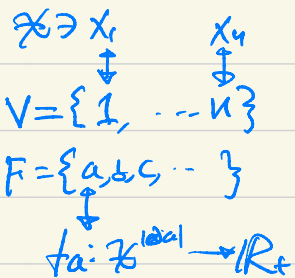 𝒳 ∋ X₁ Xₙ
↕ ↕
V = {1, ... n}
F = {a, b, c, ... }
↕
fa: 𝒳^|∂a| → ℝ₊